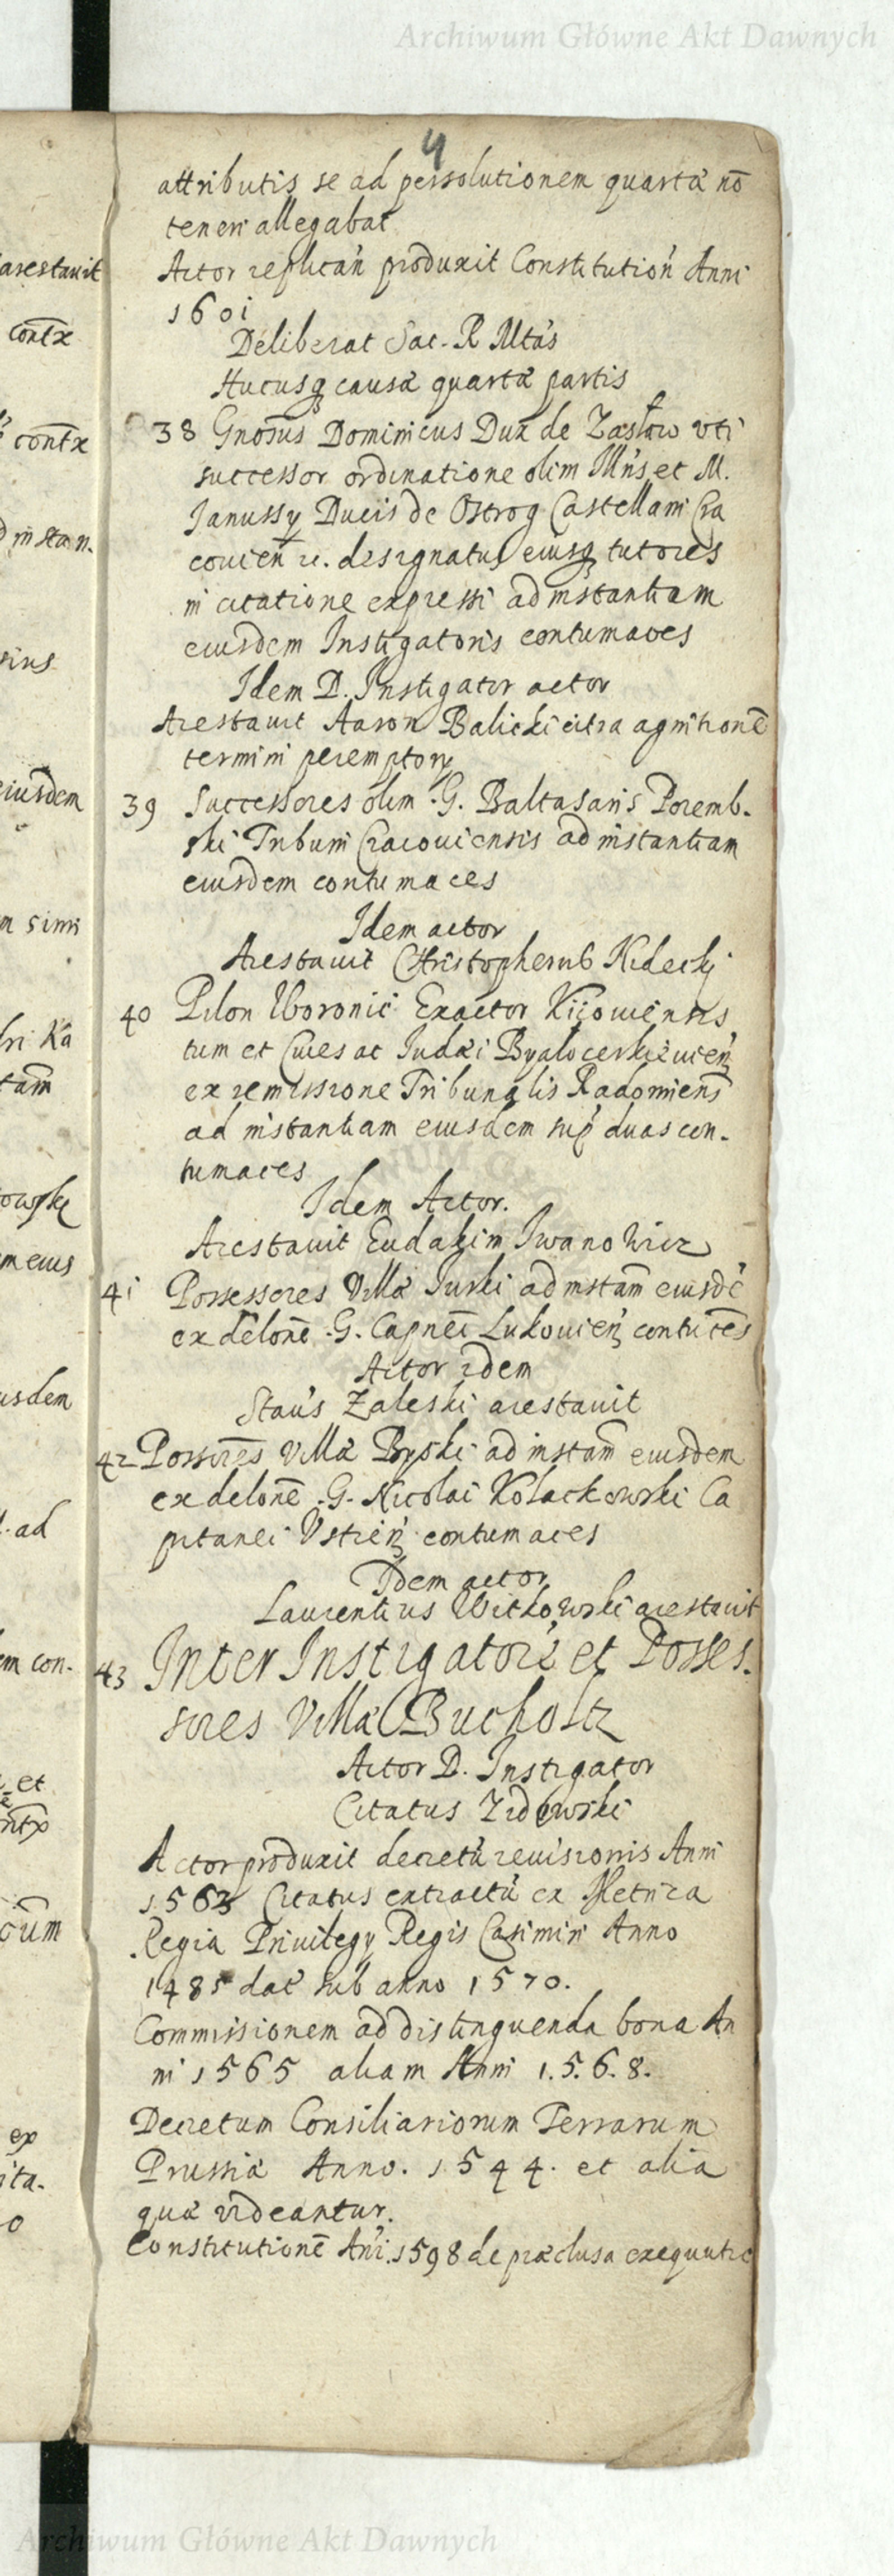 Archiwum Główne Akt Dawnych
4
attributis se ad persolutionem quartæ nõ
teneri allegabat
Actor replicań produxit Constitutioń Anni
1601
Deliberat Sac. R Mtás
Hucusq causæ quartæ partis
38 Gnosus Dominicus Dux de Zasław uti
successor ordinatione olim Illris et M.
Janussy Ducis de Ostrog Castellani Cra
covien̄ re. designatus eiusq tutores
in citatione expressi ad instantiam
eiusdem Instigatoris contumaces
Idem D. Instigator actor
Arestavit Aaron Balicki citra agnitionē
termini peremptory
39 Successores olim G. Baltasaris Poremb.
ski Tribuni Cracoviensis ad instantiam
eiusdem contumaces
Idem actor
Arestavit Christopherus Nidecky
40 Pilon Woronic Exactor Kijoviensis
tum et Cives ac Judæi Byałocerkievień
ex remissione Tribunalis Radomiens̄
ad instantiam eiusdem sup duas con.
tumaces
Idem Actor.
Arestavit Eudakim Iwanowicz
41 Possessores Villæ Jurki ad instam̄ eiusdē
ex delonē G. Capneī Lukovień contuces
Actor idem
Staus Zaleski arestavit
42 Possores Villæ Pyski ad instam̄ eiusdem
ex delonē G. Nicolai Kołackowski Ca
pitanei Ustień contumaces
Idem actor
Laurentius Witkowski arestavit
43 Inter Instigatore et Posses.
sores Villæ Bucholtz
Actor D. Instigator
Citatus Zidowski
Actor produxit decretū revisionis Anni
1563 Citatus extractū ex Metrica
Regia Privilegy Regis Casimiri Anno
1485 dat sub anno 1570.
Commissionem ad distinguenda bona An
ni 1565 aliam Anni 1.5.6.8.
Decretum Consiliariorum Terrarum
Prussiæ Anno. 1544. et alia
quæ videantur.
Constitutionē Ani. 1598 de præclusa exequutio
arestavit
contx
contx
d instan.
eiusdem
m simi
tam̄
m eius
usdem
. ad
em con.
et
cum̄
ex
ita.
Archiwum Główne Akt Dawnych